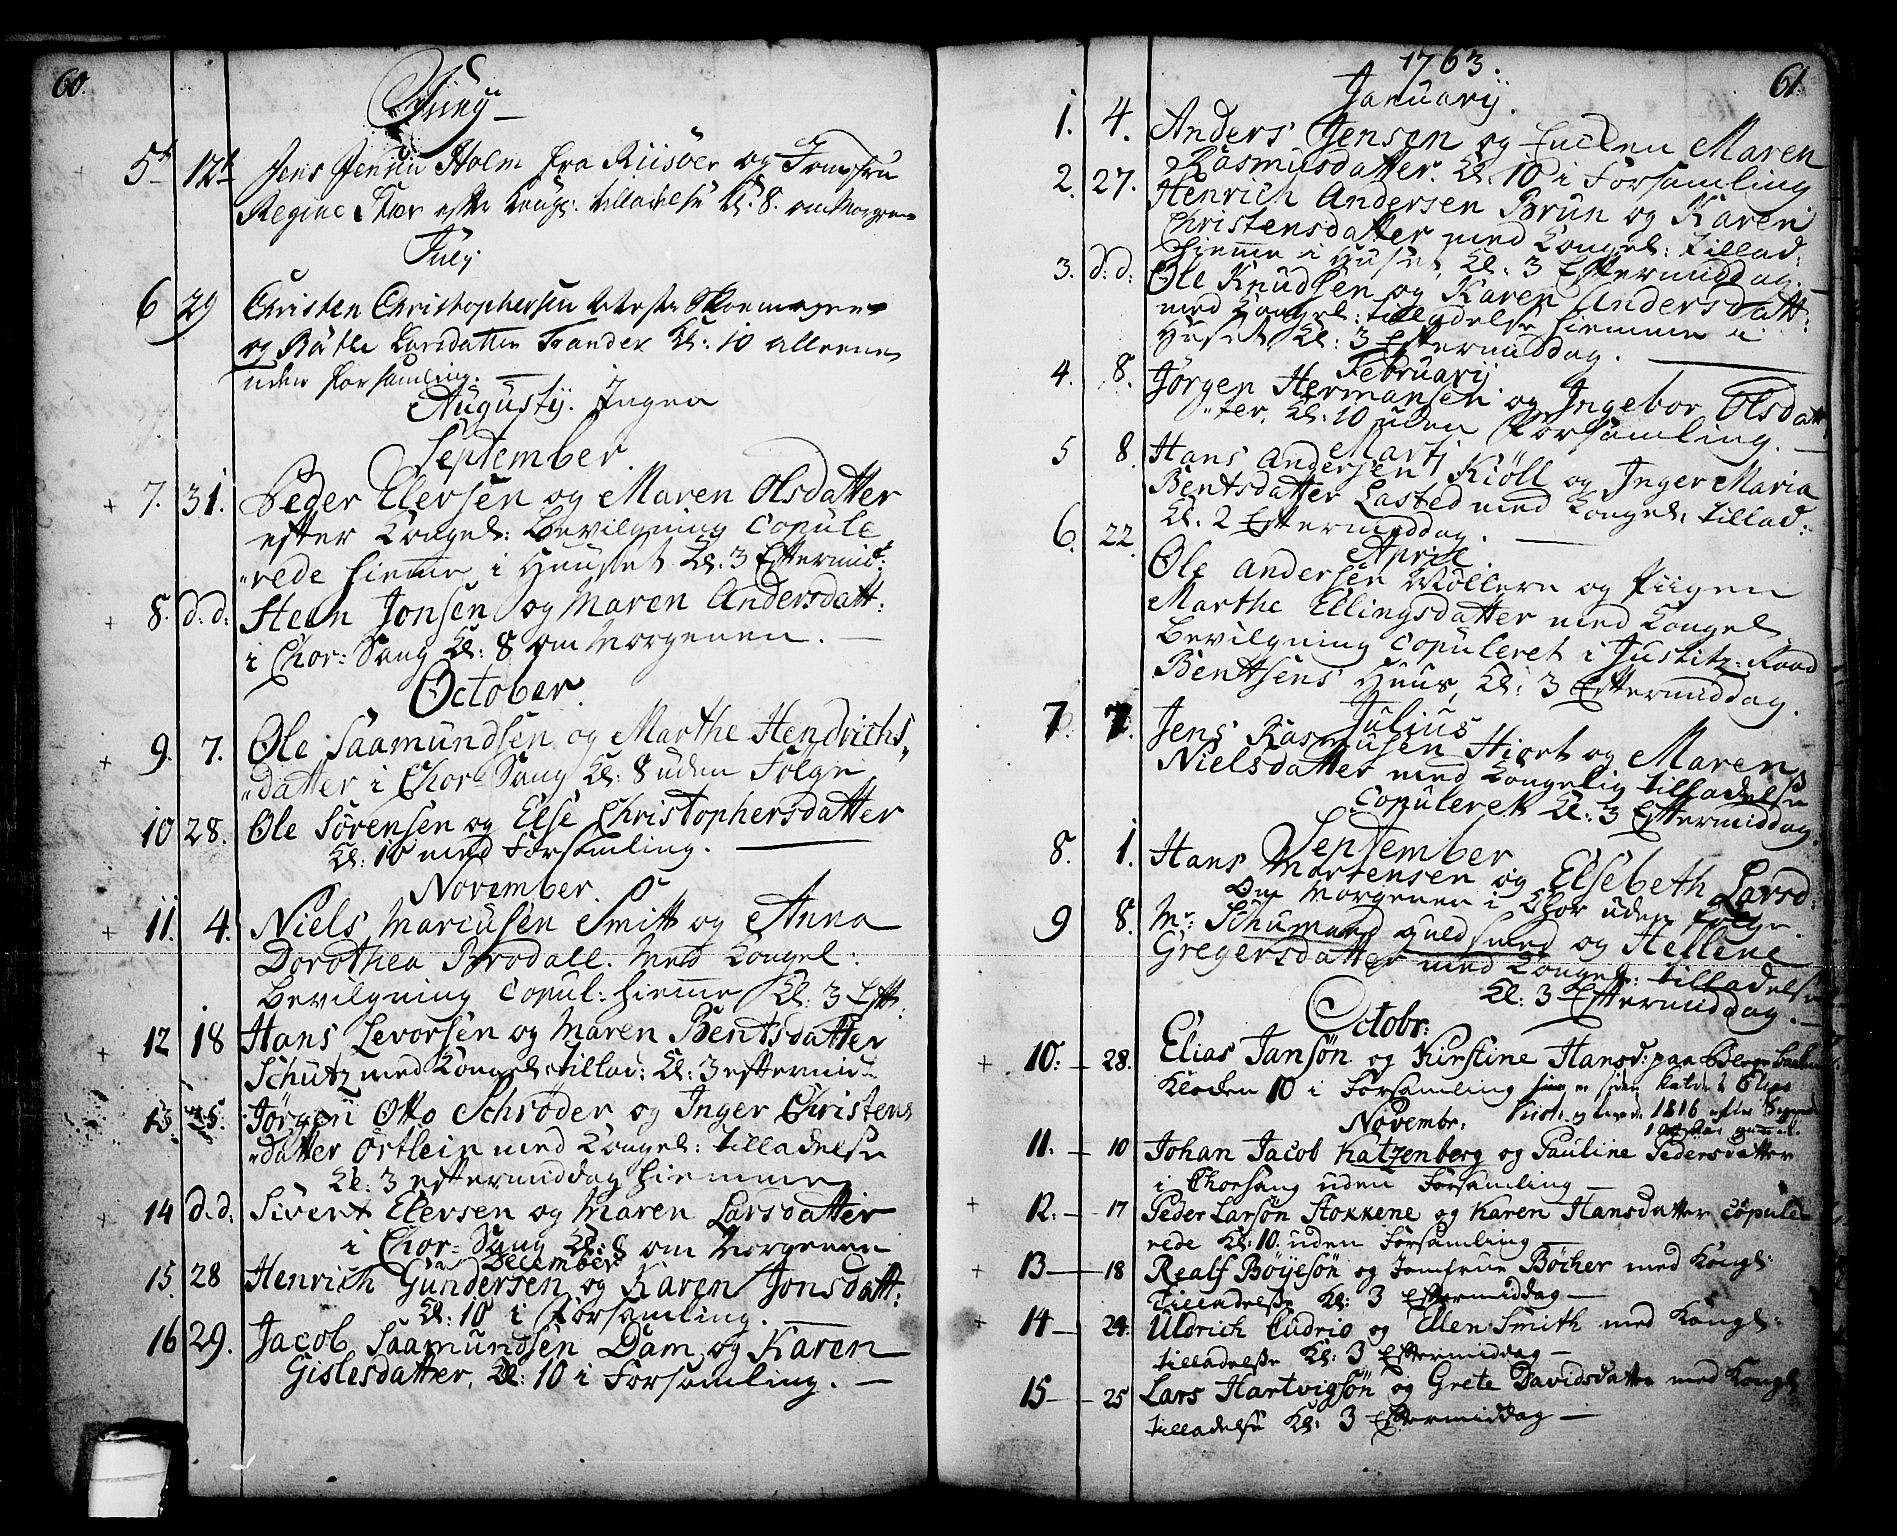 60.
Juny
5t 12t Jens Jensen Holm fra Riisöer og Jomfru
Regine efter Kongl: tilladelse Kl. 8. om Morgenen
July
6 29 Christen Christophersen Skoemager
og Kätle Larsdatter Trander Kl: 10 alleene
uden forsamling.
Augustij. Ingen
September.
7. 31. Peder Elersen og Maren Olsdatter
efter Kongel: Bevilgning Copule
rede hieme i Huuset Kl. 3 Eftermid:
8. d.d: Steen Jonsen og Maren Andersdatt:
i Chor: Sang Kl: 8 om Morgenen. —
October.
9. 7. Ole Saamundsen og Marthe Hendrichs
datter i Chor-Sang Kl: 8 uden Følge
10 28. Ole Sørensen og Else Christophersdatter
Kl: 10 med Forsamling. —
November.
11. 4. Niels Mariusen Smitt og Anna
Dorothea Brodall. Med Kongel:
Bevilgning Copul: hieme Kl: 3 Eft:
12 18 Hans Levorsen og Maren Bentsdatter
Schutz med Kongel: tillad: Kl: 3 eftermid:
13. 25. Jørgen Otto Schrøder og Inger Christens
datter Ortlein med Kongel: tilladelse
Kl: 3 eftermiddag hiemme
14 d.d: Sivert Elersen og Maren Larsdatter
i Chor-Sang Kl: 8 om Morgenen
December
15. 28 Henrich Gundersen og Karen Jonsdatt:
Kl: 10 i Forsamling. —
16 29. Jacob Saamundsen Dam og Karen
Gislesdatter, Kl: 10 i Forsamling. —
61.
1763.
Januarij.
1. 4. Anders Jensen og Encken Maren
Rasmusdatter. Kl: 10 i Forsamling
2. 27. Henrich Andersen Brun og Karen
Christensdatter med Kongel: Tillad:
hieme i Huset, Kl: 3 Eftermiddag.
3. d:d: Ole Knudsen og Karen Andersdatt:
med Kongel: tilladelse hiemme i
Huset Kl: 3 Eftermiddag. —
Februarij.
4. 8. Jörgen Hermansen og Ingebor Olsdatt
ter, Kl: 10 uden Forsamling. —
Martj
5 8. Hans Andersen Kiöll og Inger Maria
Bentsdatter Lasted med Kongel: tillad:
Kl: 2 Eftermiddag. —
April.
6. 22. Ole Andersen Møllern og Piigen
Marthe Ellingsdatter med Kongel
Bevilgning Copuleret i Justitz: Raad
Bentsens Huus, Kl: 3 Eftermiddag.
Julius
7. 7. Jens Rasmusen Hiort og Maren
Nielsdatter med Kongelig tilladelse
Copuleret Kl: 3 Eftermiddag.
September
8. 1. Hans Mortensen og Elsebeth Larsd:
Om Morgenen i Chor uden følge.
9 8. Mr. Schumand guldsmed og Hellene
Gregersdatter med Kongel: tilladelse
Kl: 3 Eftermiddag. —
Octobr:
10: 28. Elias Jansøn og Kirstine Hansd: paa
Kloden 10 i Forsamling siden kaldet Elias
Novembr: 1816 efter
11. 10 Johan Jacob Katzenberg og Pauline Pedersdatter
i Chorsang uden Forsamling —
12. 17 Peder Larsøn Stokkene og Karen Hansdatter Copule
rede Kl: 10. uden Forsamling —
13 — 18 Realf Bøyesøn og Jomfrue Böcher med Kongl:
Tilladelsse Kl: 3 Eftermiddag —
14 — 24. Uldrich Cudrio og Ellen Smith med Kongl:
tilladelsse Kl: 3 Eftermiddag —
15 — 25 Lars Hartvigsøn og Grete Davidsdatter med Kongl
tilladelse Kl: 3 Eftermiddag —